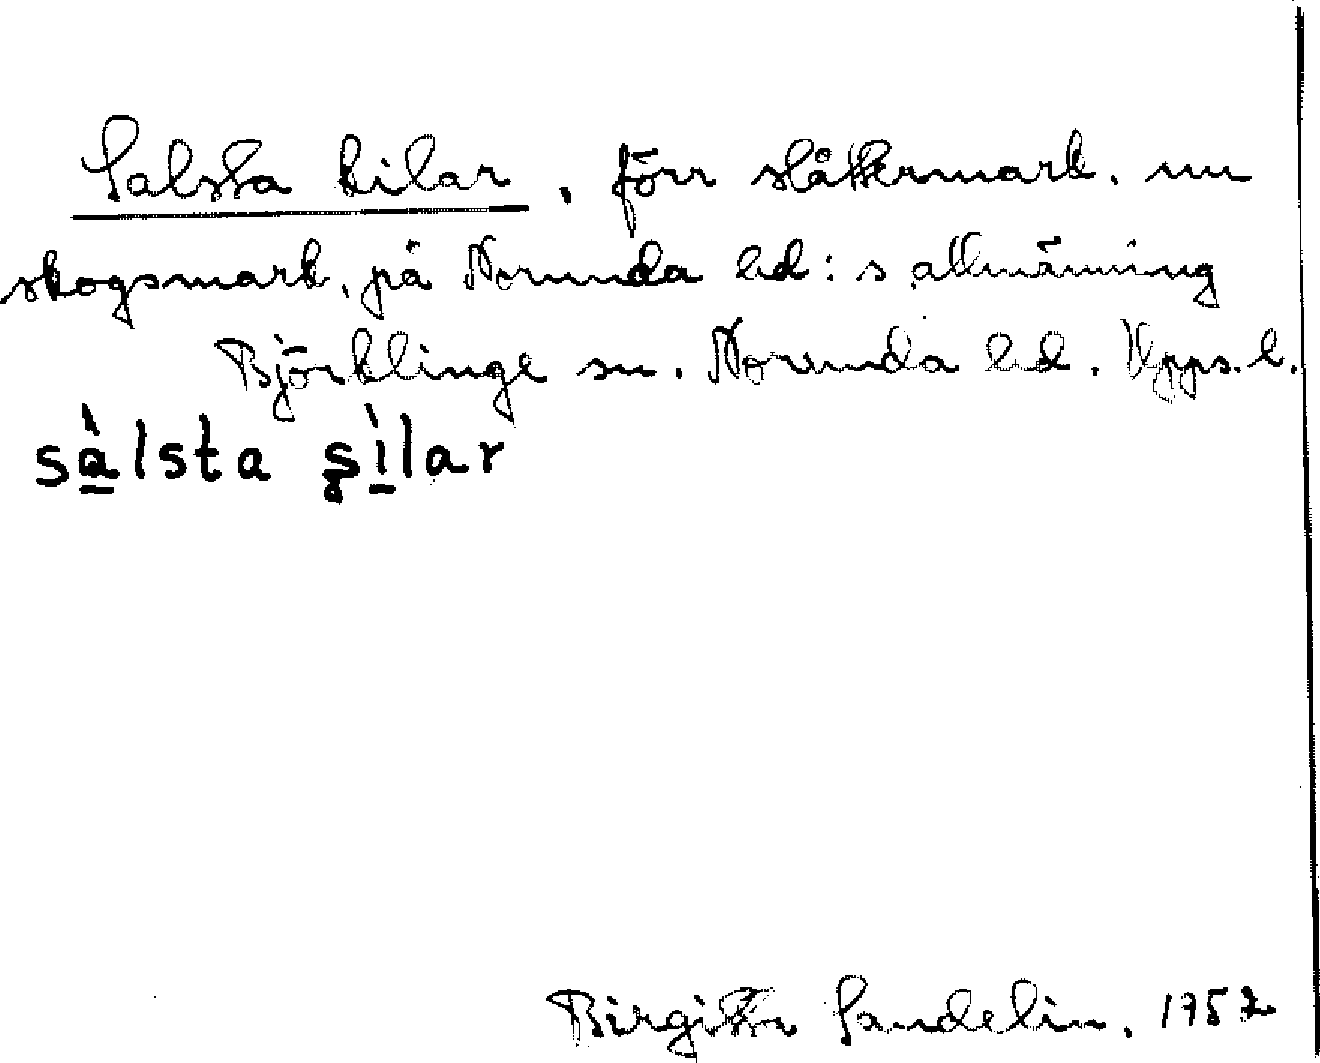 Salsta kilar, förr slåttermark, nu
skogsmark, på Norunda hd:s allmänning
Björklinge sn. Norunda hd. Upps. l.
sàlsta şìlar
Birgitta Sandelin. 1952